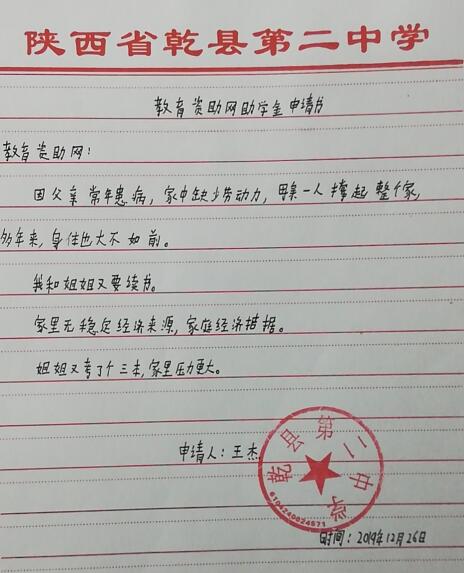 陕西省乾县第二中学
教育资助网助学金申请书
教育资助网：
因父亲常年患病，家中缺少劳动力，母亲一人撑起整个家，
多年来，身体也大不如前。
我和姐姐又要读书。
家里无稳定经济来源，家庭经济拮据。
姐姐又考了个三本，家里压力更大。
申请人：王杰
乾县第二中学
6104240024571
时间：2019年12月26日